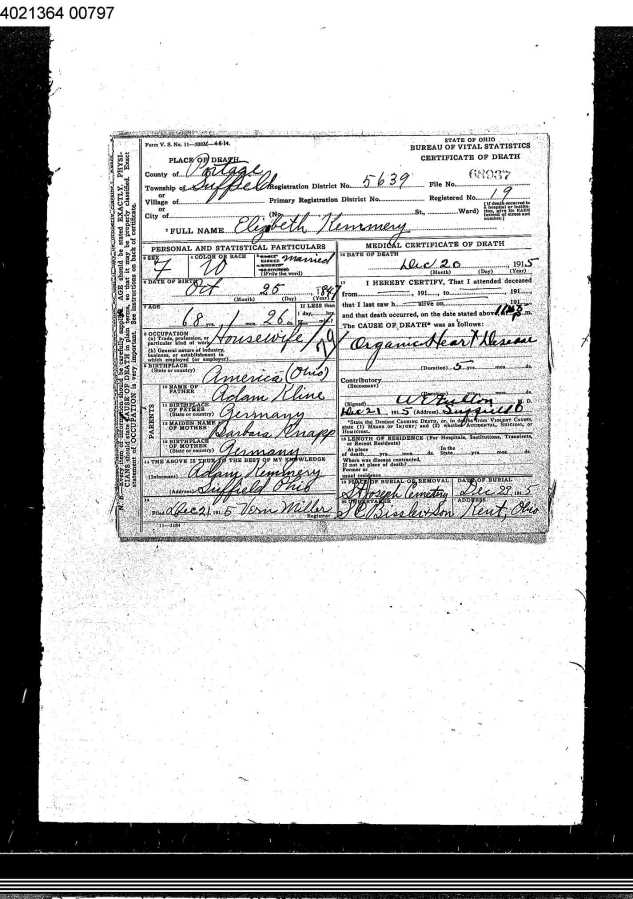 4021364 00797
Form V. S. No. 11
STATE OF OHIO
BUREAU OF VITAL STATISTICS
CERTIFICATE OF DEATH
PLACE OF DEATH
County of Portage
Township of Suffield Registration District No. 5639 File No. 68937
or
Village of Primary Registration District No. Registered No. 19
or
City of (No. St., Ward)
FULL NAME Elizabeth Kemmery
PERSONAL AND STATISTICAL PARTICULARS
SEX
F
COLOR OR RACE
W
Married
(Write the word)
DATE OF BIRTH
Oct 25 184
(Month) (Day) (Year)
AGE
68 yrs. 1 mos. 26 ds.
If LESS than
1 day, hrs.
OCCUPATION
(a) Trade, profession, or
particular kind of work Housewife
(b) General nature of industry,
business, or establishment in
which employed (or employer)
79
BIRTHPLACE
(State or country) America (Ohio)
PARENTS
10 NAME OF
FATHER Adam Kline
11 BIRTHPLACE
OF FATHER
(State or country) Germany
12 MAIDEN NAME
OF MOTHER Barbara Knapp
13 BIRTHPLACE
OF MOTHER
(State or country) Germany
14 THE ABOVE IS TRUE TO THE BEST OF MY KNOWLEDGE
(Informant) Adam Kemmery
(Address) Suffield Ohio
15
Filed Dec 21, 1915 Vern Miller
Registrar
11-1184
MEDICAL CERTIFICATE OF DEATH
16 DATE OF DEATH
Dec 20 1915
(Month) (Day) (Year)
17 I HEREBY CERTIFY, That I attended deceased
from 191 , to 191
that I last saw h alive on 191
and that death occurred, on the date stated above, m.
The CAUSE OF DEATH* was as follows:
Organic Heart Disease
(Duration) 5 yrs. mos. ds.
Contributory
(Secondary)
(Duration) yrs. mos. ds.
(Signed) M. D.
Dec 21 1915 (Address) Suffield O
*State the Disease Causing Death, or, in deaths from Violent Causes,
state (1) Means of Injury; and (2) whether Accidental, Suicidal, or
Homicidal.
18 LENGTH OF RESIDENCE (For Hospitals, Institutions, Transients,
or Recent Residents)
At place In the
of death yrs. mos. ds. State yrs. mos. ds.
Where was disease contracted,
if not at place of death?
Former or
usual residence
19 PLACE OF BURIAL OR REMOVAL DATE OF BURIAL
St Joseph Cemetery Dec 23, 1915
20 UNDERTAKER ADDRESS
S C Bissler & Son Kent, Ohio